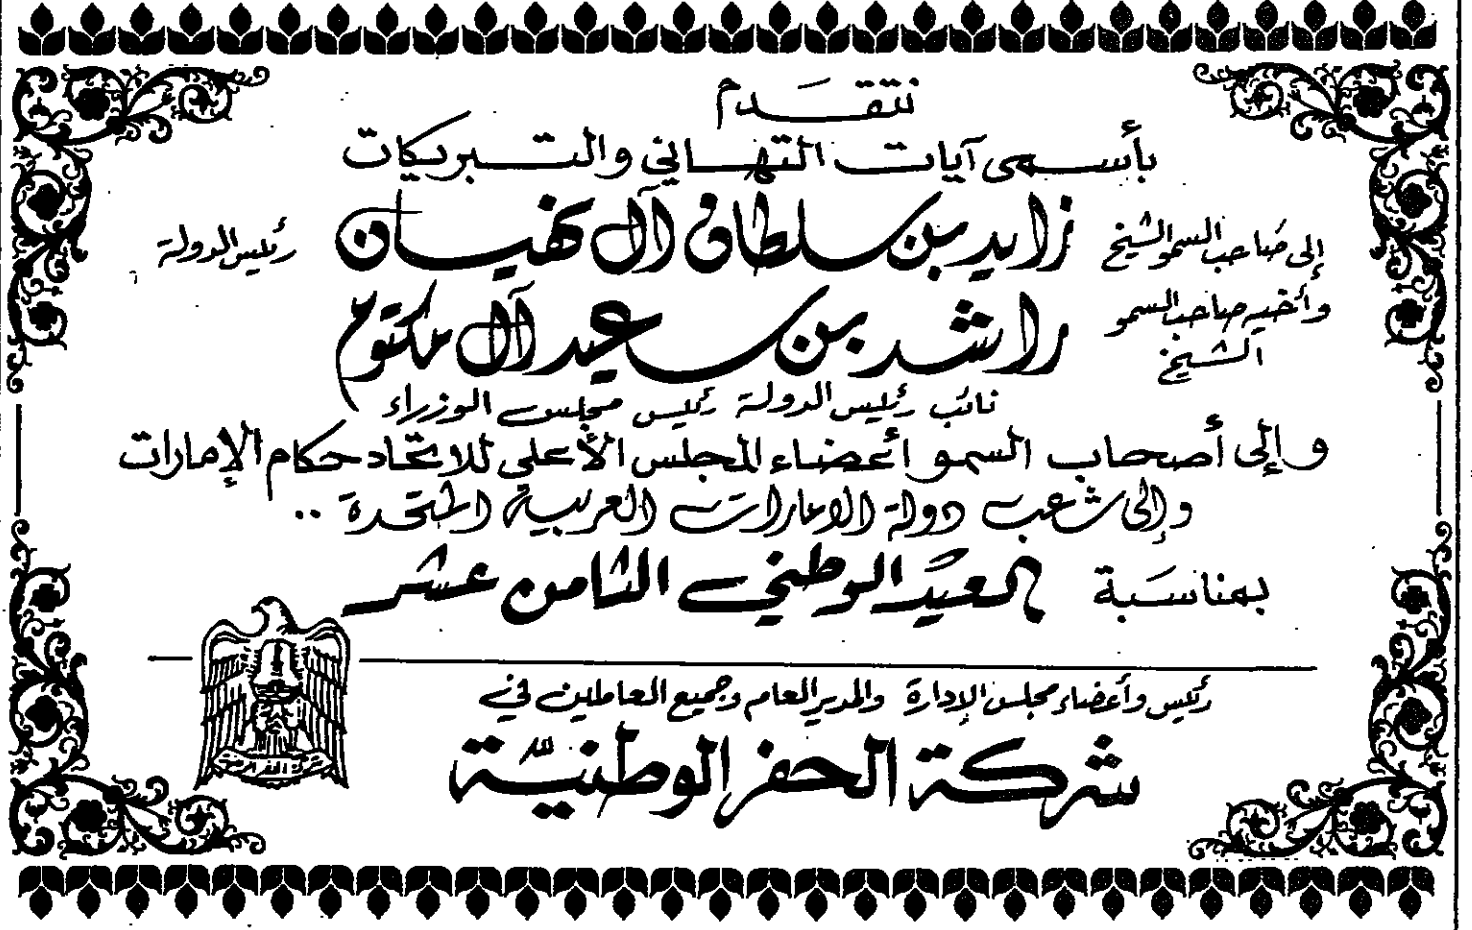 نتقدم
بأسمى آيات التهاني والتبريكات
إلى صاحب السمو الشيخ زايد بن سلطان آل نهيان رئيس الدولة
وأخيه صاحب السمو الشيخ راشد بن سعيد آل مكتوم
نائب رئيس الدولة رئيس مجلس الوزراء
وإلى أصحاب السمو أعضاء المجلس الأعلى للاتحاد حكام الإمارات
وإلى شعب دولة الامارات العربية المتحدة ..
بمناسبة العيد الوطني الثامن عشر
رئيس وأعضاء مجلس الإدارة والمدير العام وجميع العاملين في
شركة الحفر الوطنية